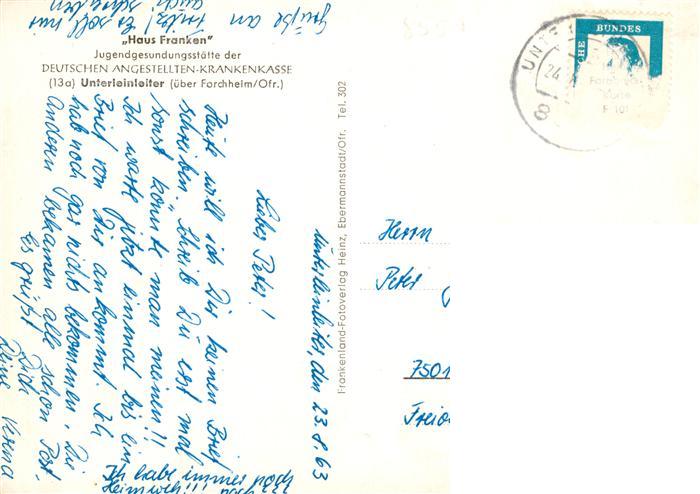 „Haus Franken"
Jugendgesundungsstätte der
DEUTSCHEN ANGESTELLTEN-KRANKENKASSE
(13a) Unterleinleiter (über Forchheim/Ofr.)
Unterleinleiter, den 23.8.63
Lieber Peter!
Heute will ich Dir keinen Brief
schreiben. Schreib Du erst mal
sonst könnte man meinen!!
Ich warte jetzt einmal bis ein
Brief von Dir ankommt. Ich
hab noch gar nichts bekommen. Die
Anderen bekamen alle schon Post.
Es grüßt
Dich
Deine Verena
Ich habe immer noch
Heimweh!!!
Grüße an
Fritz! Er soll mir
auch schreiben
Frankenland-Fotoverlag Heinz, Ebermannstadt/Ofr. Tel. 302
BUNDES
Forch
F 101
UNTE
24.
8
Herrn
Peter
7501